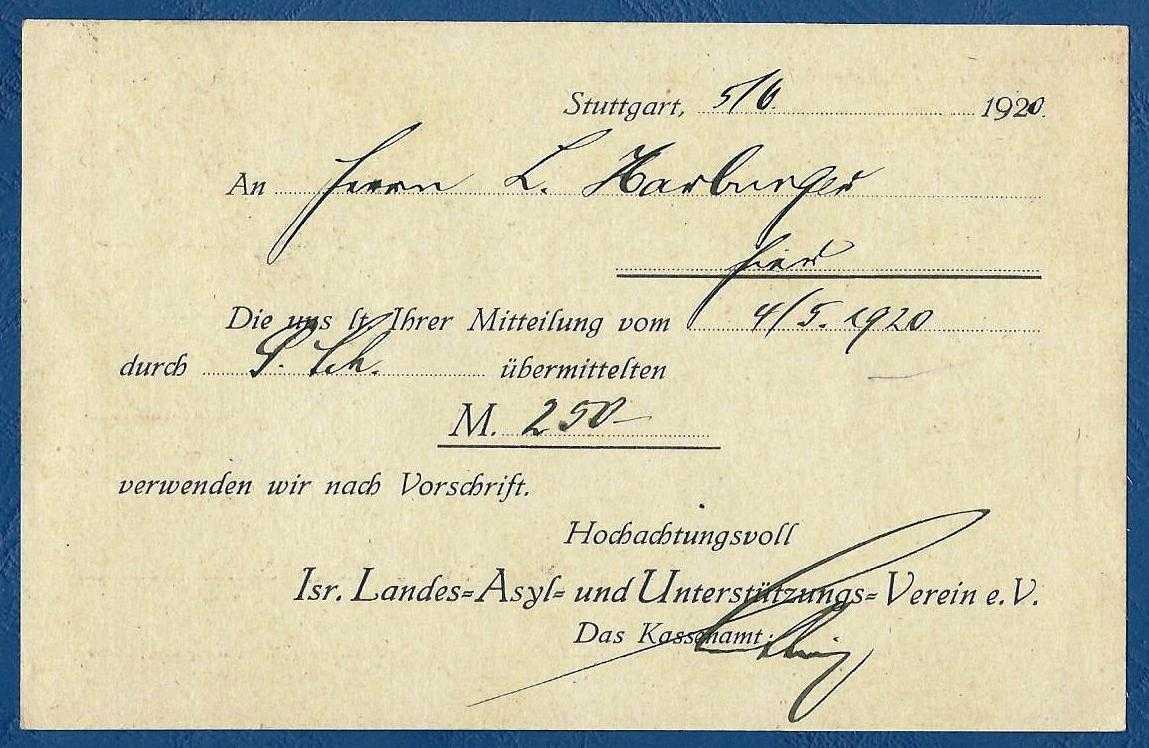 Stuttgart, 5/6. 1920.
An Herrn L. Harburger
hier
Die uns lt. Ihrer Mitteilung vom 4/5. 1920
durch S. Sch. übermittelten
M. 250-
verwenden wir nach Vorschrift.
Hochachtungsvoll
Isr. Landes=Asyl= und Unterstützungs=Verein e.V.
Das Kassenamt: